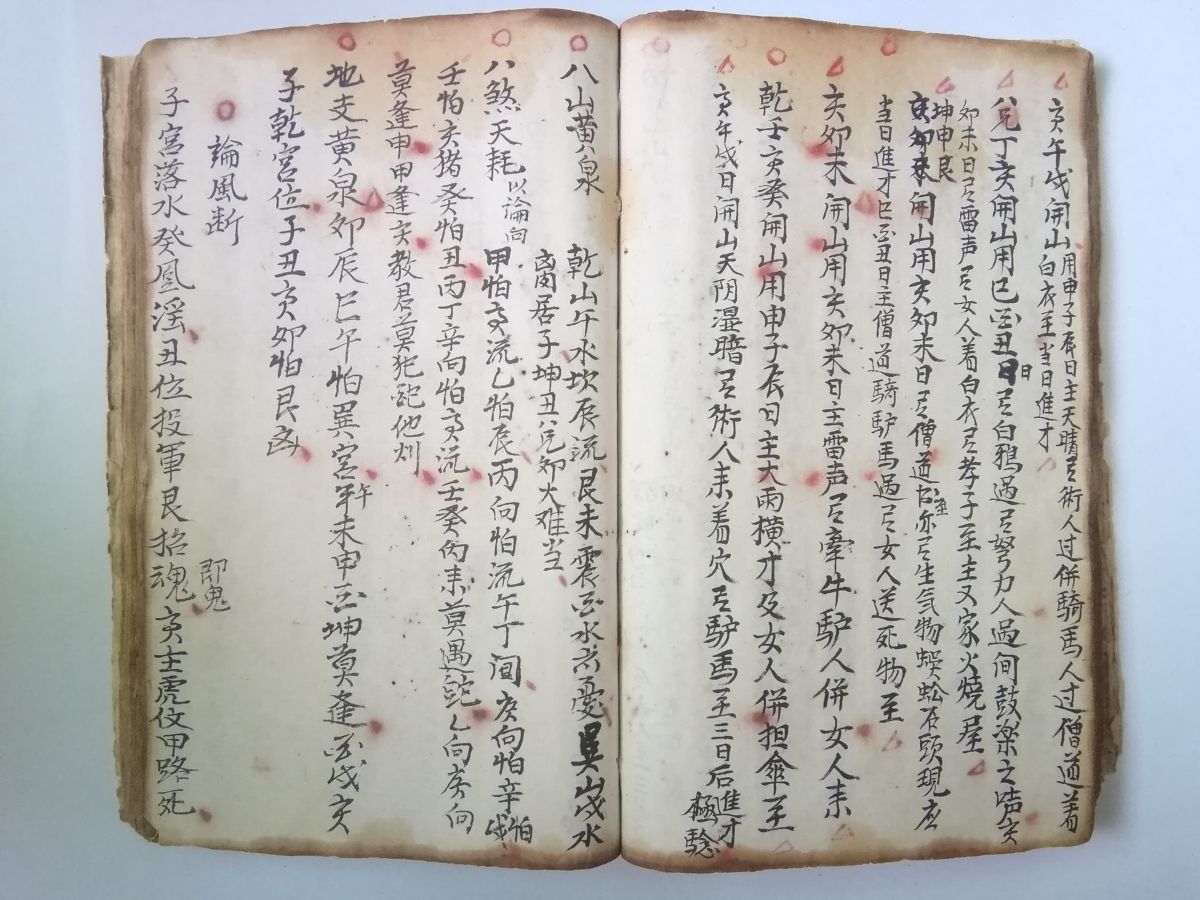 寅午戌開山用申子辰日主天晴有術人过併騎馬人过僧道着
白衣至当日進才
八兑丁亥開山用巳酉丑日有白鴉過有努力人過间鼓楽之
卯未日有雷声有女人着白衣有孝子至主又家火燒屋
坤申艮
亥卯未開山用亥卯未日有僧道至有生気物蜈蚣石頭現应
当日進才巳酉丑日主僧道騎馿馬過有女人送死物至
亥卯未開山用亥卯未日主雷声有牽牛馿人併女人来
乾壬亥癸開山用申子辰日主大雨横才及女人併担傘至
寅午戌日開山天阴湿暗有術人来着穴有馿馬至三日后進才
極驗
八山黄泉 乾山午水坎辰流艮未震酉水六憂巽山戌水
离居子坤丑八兑卯大难当
八煞天耗以論向 甲怕寅流乙怕辰丙向怕流午丁間庚向怕辛怕戌
壬怕亥猪癸怕丑丙丁辛向怕寅流壬癸向来莫遇蛇乙向庚向
莫逢申甲逢亥教君莫犯蛇他刈
地支黄泉卯辰巳午怕巽宮午未申酉坤莫逢酉戌亥
子乾宮位子丑寅卯怕艮凶
論風断
即鬼
子宮落水癸風淫丑位投軍艮招魂寅主虎伩甲路死